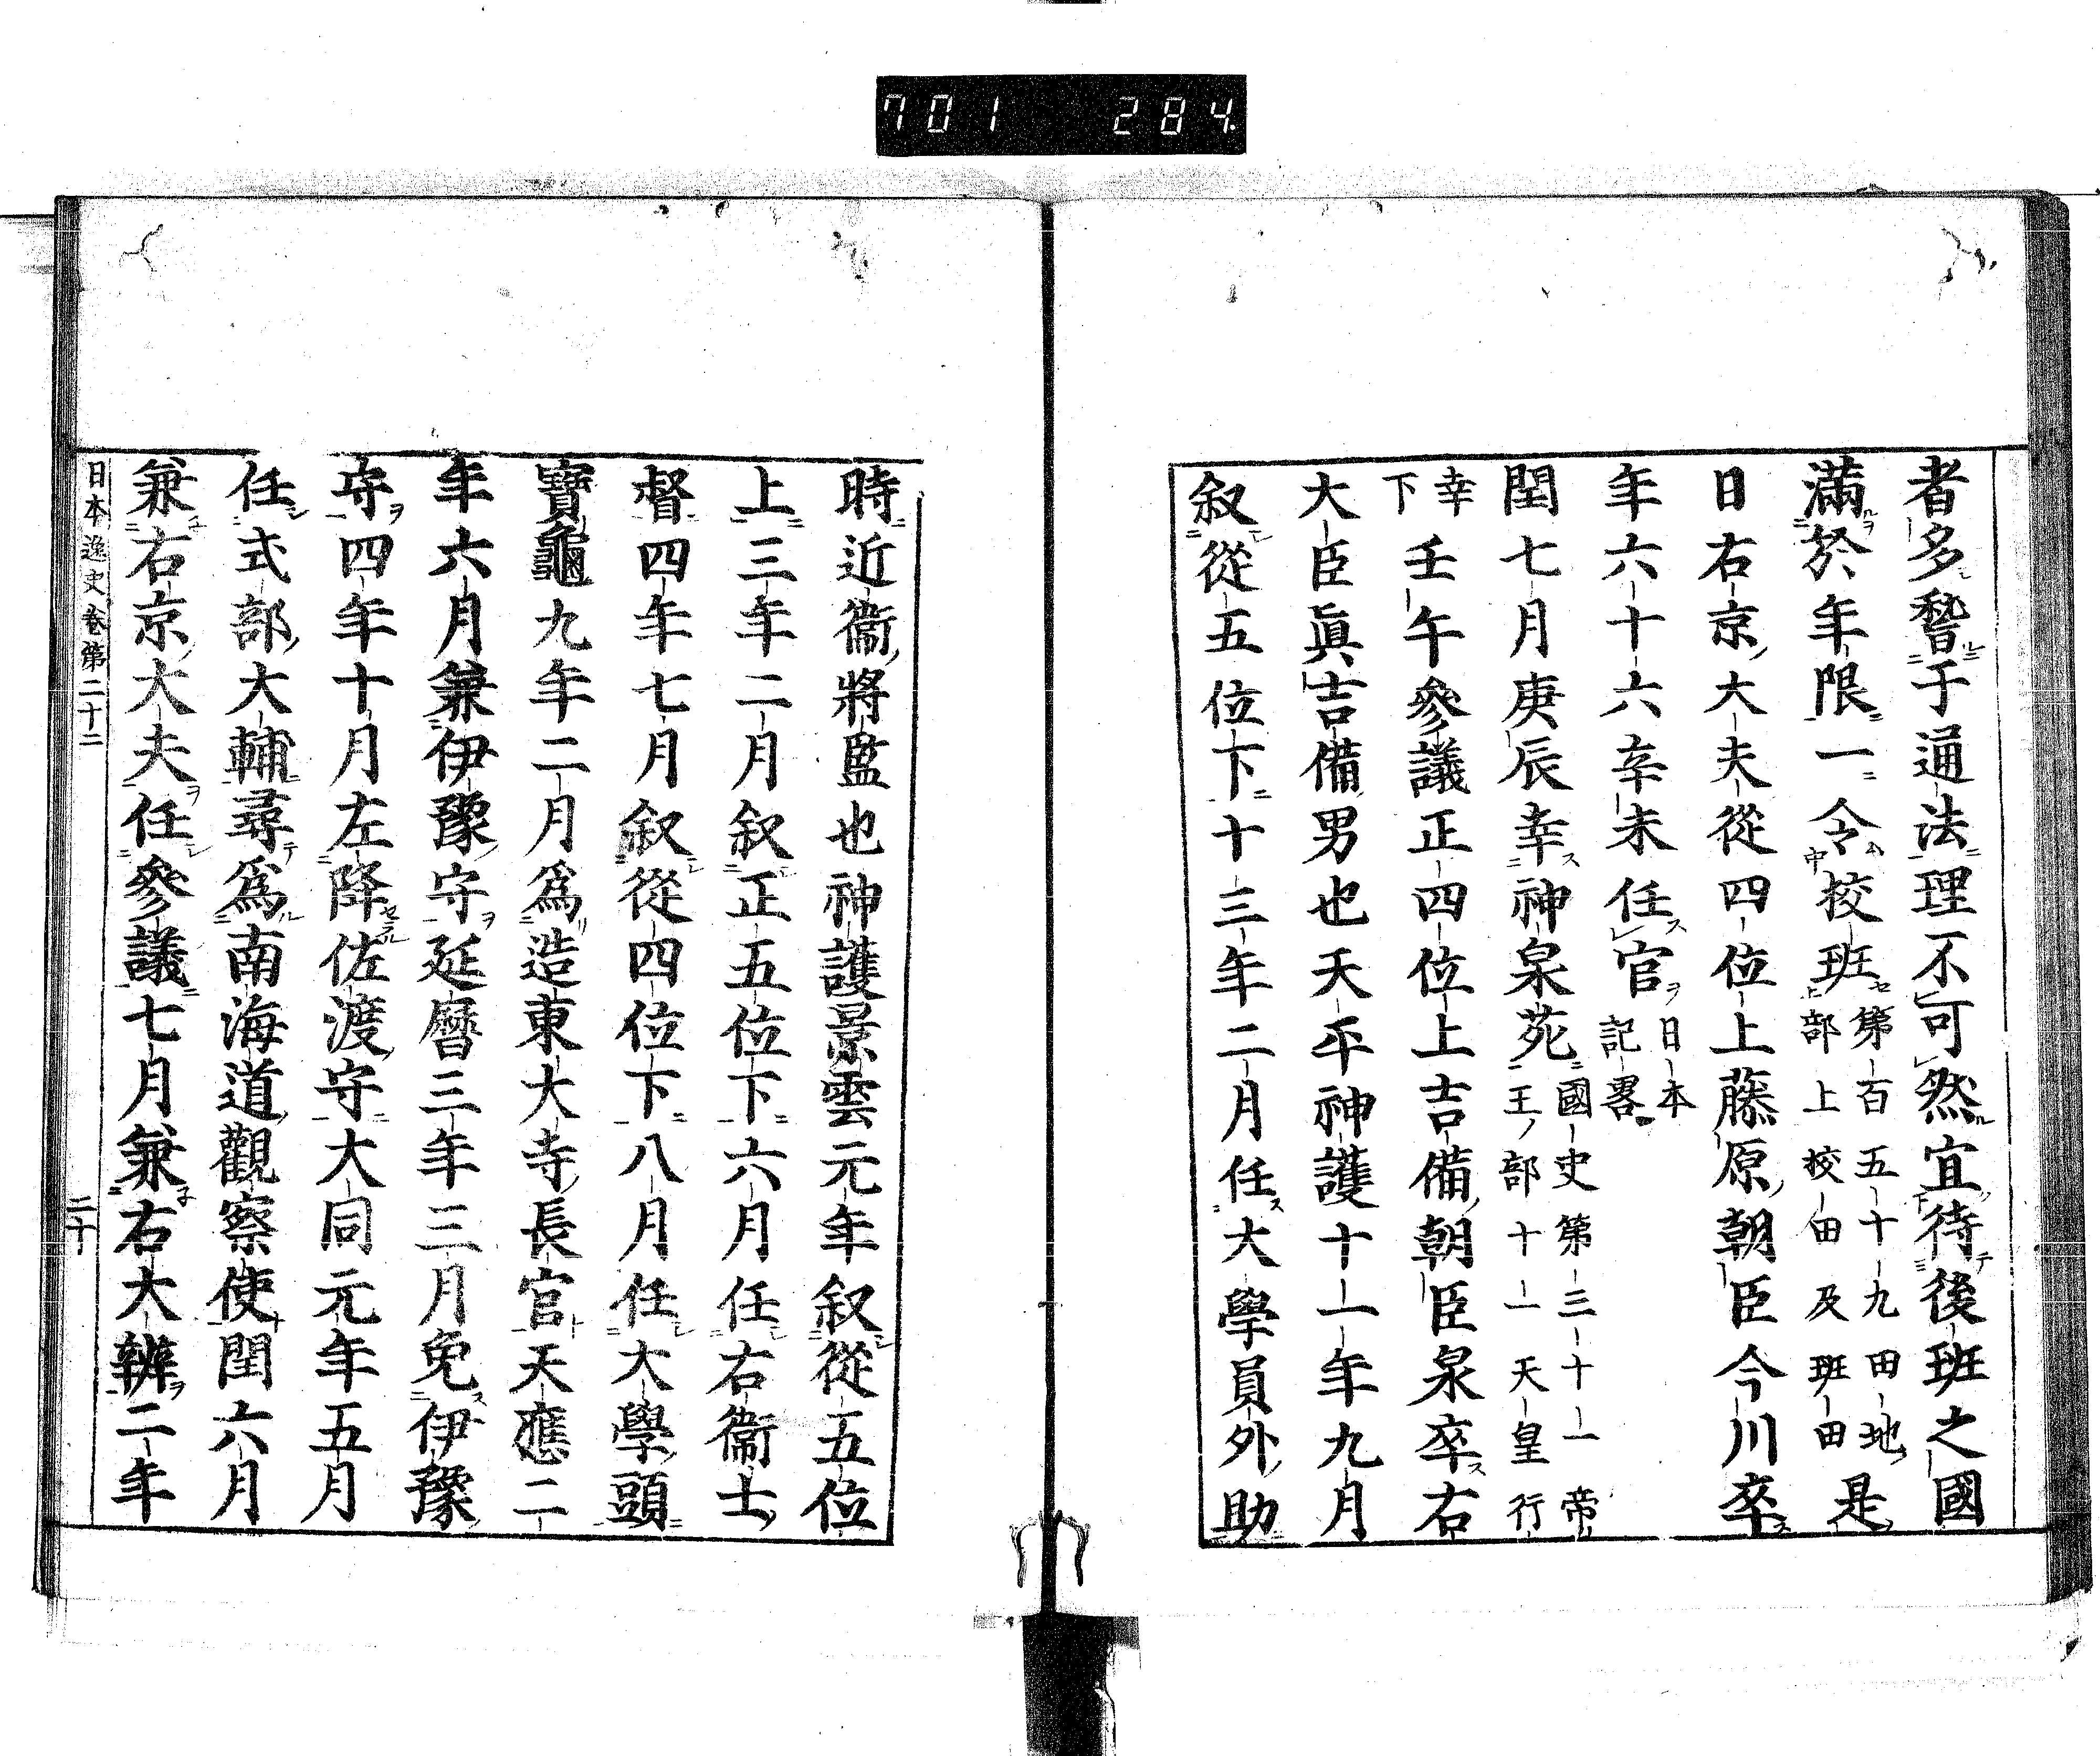 701 284
者多稽于通法理不可然宜待後班之國
滿於年限一令校班第百五十九田地部上校田及班田是
日右京大夫從四位上藤原朝臣今川卒
年六十六辛未任官日本記畧
閏七月庚辰幸神泉苑國史第三十一帝王部十一天皇行
幸下壬午參議正四位上吉備朝臣泉卒右
大臣眞吉備男也天平神護十一年九月
叙從五位下十三年二月任大學員外助
時近衞將監也神護景雲元年叙從五位
上三年二月叙正五位下六月任右衞士
督四年七月叙從四位下八月任大學頭
寶龜九年二月爲造東大寺長官天應二
年六月兼伊豫守延暦三年三月免伊豫
守四年十月左降佐渡守大同元年五月
任式部大輔尋爲南海道觀察使閏六月
兼右京大夫任參議七月兼右大辨二年
日本逸史卷第二十二 二十